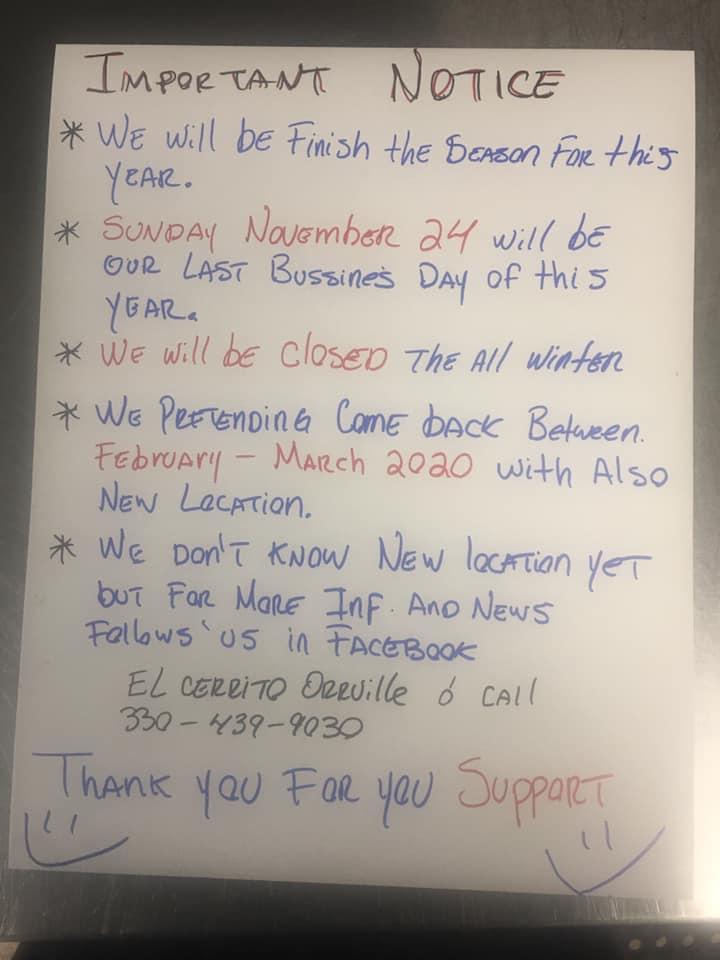 IMPORTANT NOTICE
* WE Will bE Finish thE SEASON FOR this
YEAR.
* SUNDAY NovEmbER 24 will bE
OUR LAST Bussines DAY of this
YEAR.
* WE will bE CloSED ThE All WintER
* WE PRETENDING ComE bACK Between.
FEbruARY - MARch 2020 with Also
NEW LOCATion.
* WE DON'T KNOW NEW locATion yET
buT FOR MORE INF. AND NEWS
Follows' US in FACEBOOK
EL CERRITO ORRVille ó CAll
330-439-9030
THANK you FOR you SuppORT